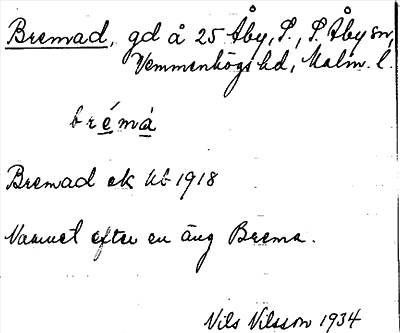 Bremad, gd å 25 Åby, S., S. Åby sn,
Vemmenhögs hd, Malm. l.
brémà
Bremad ek Ub 1918
Namnet efter en äng Brema.
Nils Nilsson 1934